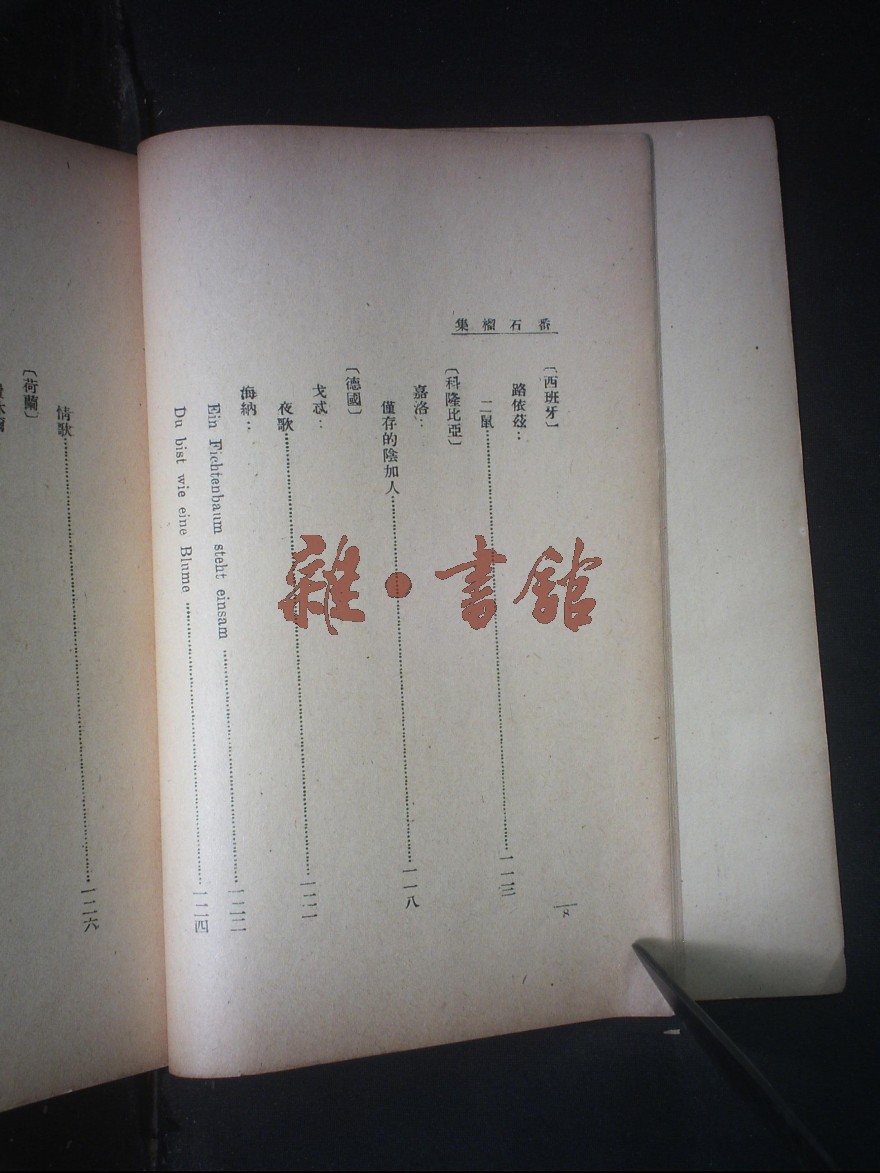 番石榴集
8
〔西班牙〕
路依茲：
二鼠………一一三
〔科隆比亞〕
嘉洛：
僅存的陰加人………一一八
〔德國〕
戈忒：
夜歌………一二一
海納：
Ein Fichtenbaum steht einsam………
Du bist wie eine Blume………一二四
情歌………一二六
〔荷蘭〕
雜·書館